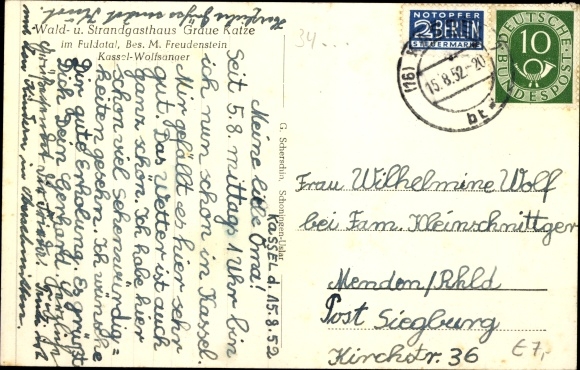 Wald- u. Strandgasthaus Graue Katze
im Fuldatal, Bes. M. Freudenstein
Kassel-Wolfsanger
KASSEL d. 15.8.52
Meine liebe Oma!
Seit 5.8. mittags 1 Uhr bin
ich nun schon in Kassel.
Mir gefällt es hier sehr
gut. Das Wetter ist auch
ganz schön. Ich habe hier
schon viel Sehenswürdig=
keiten gesehn. Ich wünsche
Dir gute Erholung. Es grüßt
Dich Dein Gerhard.
Herzliche Grüße sendet
G. Scherschin, Schoningen-Uslar
34...
NOTOPFER
2 BERLIN
STEUERMARKE
DEUTSCHE
BUNDESPOST
10
(16)
15.8.52-20
bt
Frau Wilhelmine Wolf
bei Fam. Kleinschnittger
Menden/Rhld
Post Siegburg
Kirchstr. 36
€ 7,-